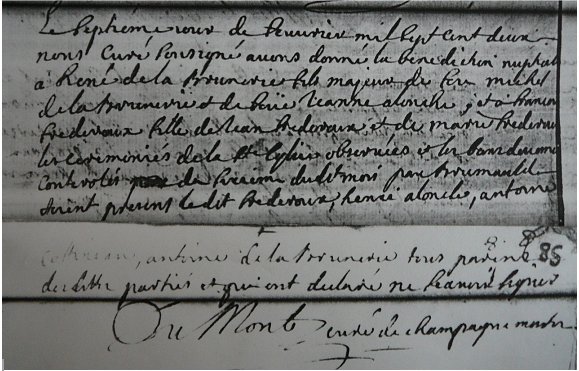 Le Septiéme iour de feuurier mil Sept cent deux
nous Curé Sousigné auons donné la benediction nuptial
a René de la brunerie fils majeur de feu michel
de la brunerie et de feüe Jeanne alonche, et a
federaux fille de Jean federaux et de marie federau
les ceremonies de la Ste eglise obseruées et les bans
controlés de du dit mois par brumauld
Soient presens le dit federaux, henri alonche, antoine
antoine de la brunerie tous parens 85
des ditte parties et qui ont declaré ne Scauoir Signer
Du Mont curé de champagne mouton